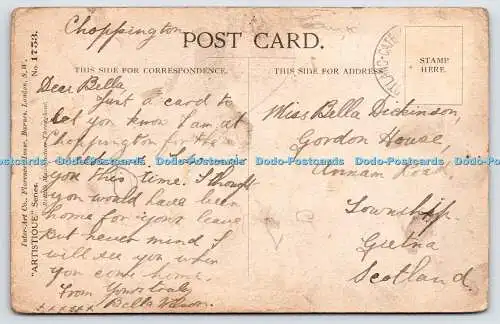 Choppington
POST CARD.
THIS SIDE FOR CORRESPONDENCE.
THIS SIDE FOR ADDRESS
STAMP
HERE.
Dear Bella
Just a card to
let you know I am at
Choppington for the
you this time. I thought
you would have been
home for your leave
But never mind I
will see you when
you come home.
From Yours truly
Bella Wilson.
xxxxx
Miss Bella Dickinson,
Gordon House,
Annan Road,
Township
Gretna
Scotland.
Inter-Art Co., Florence House, Barnes, London, S.W.
"ARTISTIQUE" Series.
No. 1753.
Dodo-Postcards Dodo-Postcards Dodo-Postcards Dodo-Postcards Dodo-Postcards